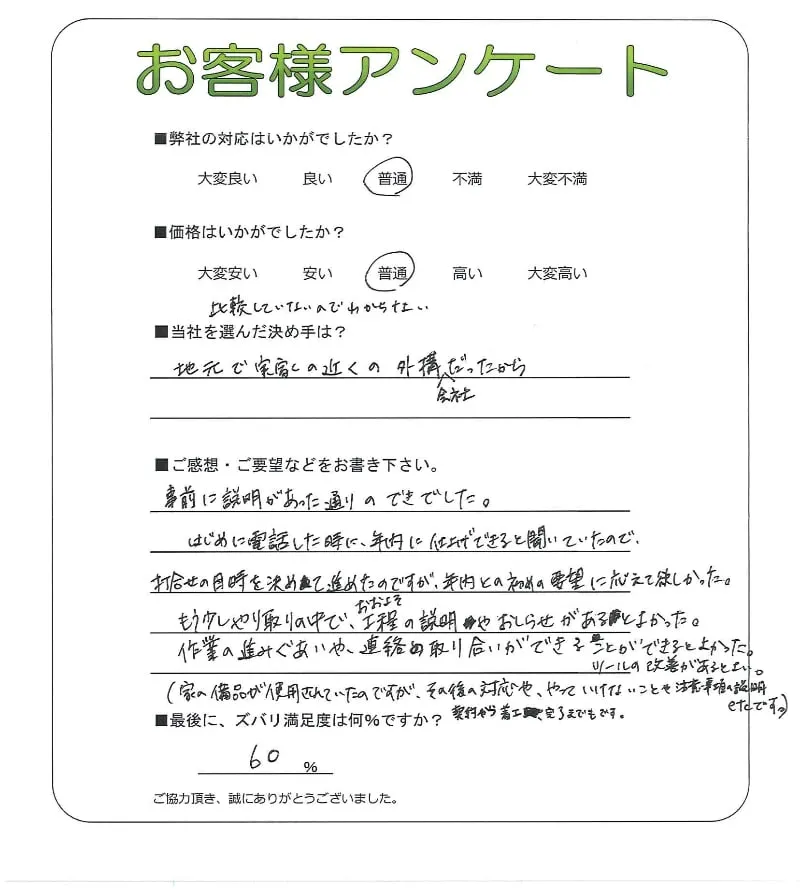 お客様アンケート
■弊社の対応はいかがでしたか？
大変良い 良い 普通 不満 大変不満
■価格はいかがでしたか？
大変安い 安い 普通 高い 大変高い
比較していないのでわからない
■当社を選んだ決め手は？
地元で実家の近くの外構だったから
会社
■ご感想・ご要望などをお書き下さい。
事前に説明があった通りのできでした。
はじめに電話した時に、年内に仕上げできると聞いていたので、
打合せの日時を決めて進めたのですが、年内との初めの要望に応えて欲しかった。
おおよそ
もう少しやり取りの中で、工程の説明やおしらせがあるとよかった。
作業の進みぐあいや、連絡の取り合いができることができるとよかった。
ツールの改善があるとよい。
(家の備品が使用されていたのですが、その後の対応や、やっていけないことや注意事項の説明
etcです。)
■最後に、ズバリ満足度は何%ですか？
契約から着工、完了までもです。
60 %
ご協力頂き、誠にありがとうございました。